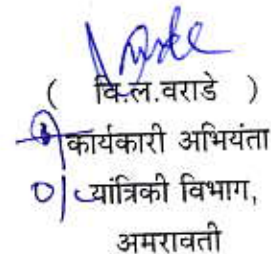 ( वि.ल.वराडे )
कार्यकारी अभियंता
यांत्रिकी विभाग,
अमरावती